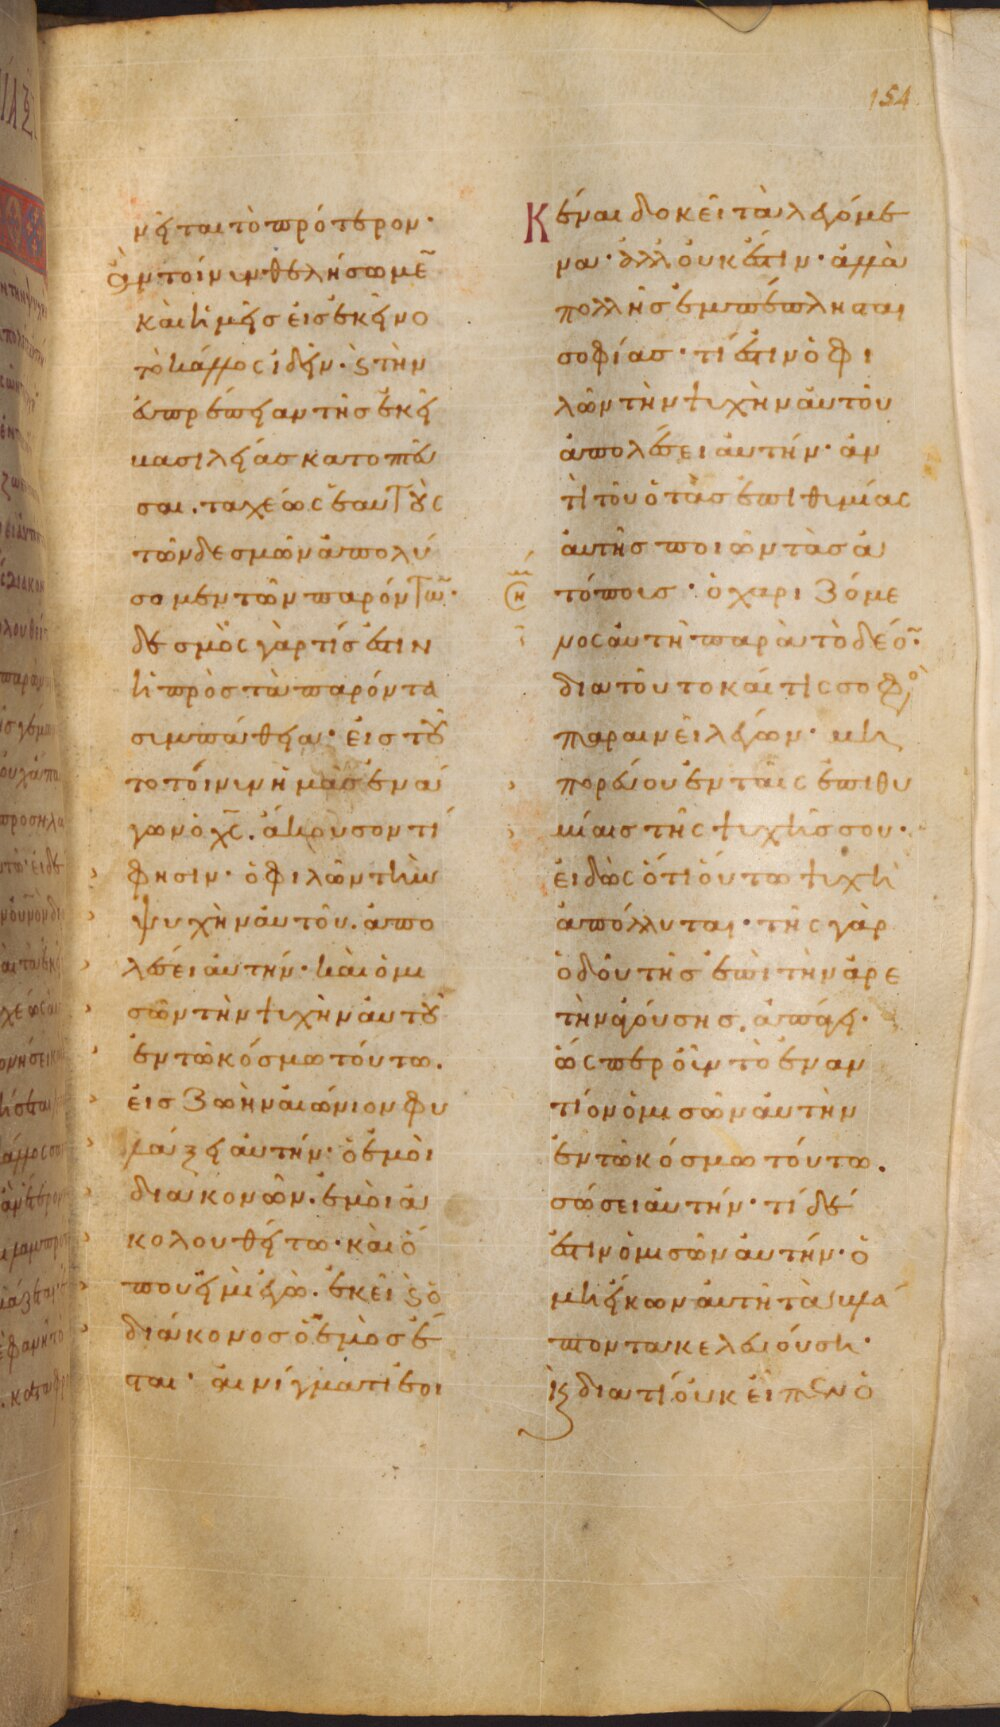 154
νεται τὸ πρότερον·
ἂν τοίνυν θελήσωμε̅
καὶ ἡμεῖς εἰς ἐκεῖνο
τὸ κάλλος ἰδεῖν· ϛ τὴν
εὐπρέπειαν τῆς ἐκεῖ
βασιλείας κατοπτεῦ
σαι. ταχέως ἑαυτοὺς
τῶν δεσμῶν ἀπολύ
σομεν τῶν παρόντω̅·
δεσμὸς γάρ τίς ἐστιν
ἡ πρὸς τὰ παρόντα
συμπάθεια· εἰς τοῦ
το τοίνυν ἡμᾶς ἐνά
γων ὁ χ̅ς. ἄκουσον τί
φησιν· ὁ φιλῶν τὴν
ψυχὴν αὐτοῦ. ἀπο
λέσει αὐτήν· καὶ ὁ μι
σῶν τὴν ψυχὴν αὐτοῦ
ἐν τῶ κόσμω τούτω.
εἰς ζωὴν αἰώνιον φυ
λάξει αὐτήν· ὁ ἐμοὶ
διακονῶν. ἐμοὶ ἀ
κολουθείτω· καὶ ὅ
που εἰμὶ ἐγὼ. ἐκεῖ ϛ ὁ
διάκονος ὁ ἐμὸς ἔσ
ται· αἰνίγματι ἐοι
Κέναι δοκεῖ τὰ λεγόμε
να· ἀλλ' οὐκ ἔστιν· ἀλλὰ
πολλῆς ἐμπέπλησται
σοφίας· τί ἐστιν ὁ φι
λῶν τὴν ψυχὴν αὐτοῦ
ἀπολέσει αὐτήν· ἀν
τὶ τοῦ ὁ τὰς ἐπιθυμίας
αὐτῆς ποιῶν τὰς ἀ
τόποις· ὁ χαριζόμε
νος αὐτῆ παρὰ τὸ δέο̅·
διὰ τοῦτο καί τις σοφὸ
παραινεῖ λέγων· μὴ
πορεύου ἐν ταῖς ἐπιθυ
μίαις τῆς ψυχῆς σου·
εἰδὼς ὅτι οὕτω ψυχὴ
ἀπόλλυται· τῆς γὰρ
ὁδοῦ τῆς ἐπὶ τὴν ἀρε
τὴν ἀγούσης. ἀπάγει·
ὥσπερ οὖν τὸ ἐναν
τίον ὁ μισῶν αὐτὴν
ἐν τῶ κόσμω τούτω.
σώσει αὐτήν· τί δέ
ἐστιν ὁ μισῶν αὐτήν· ὁ
μὴ εἴκων αὐτῆ τὰ βλά
πτοντα κελευούση·
ϛ διατί οὐκ εἶπεν ὁ